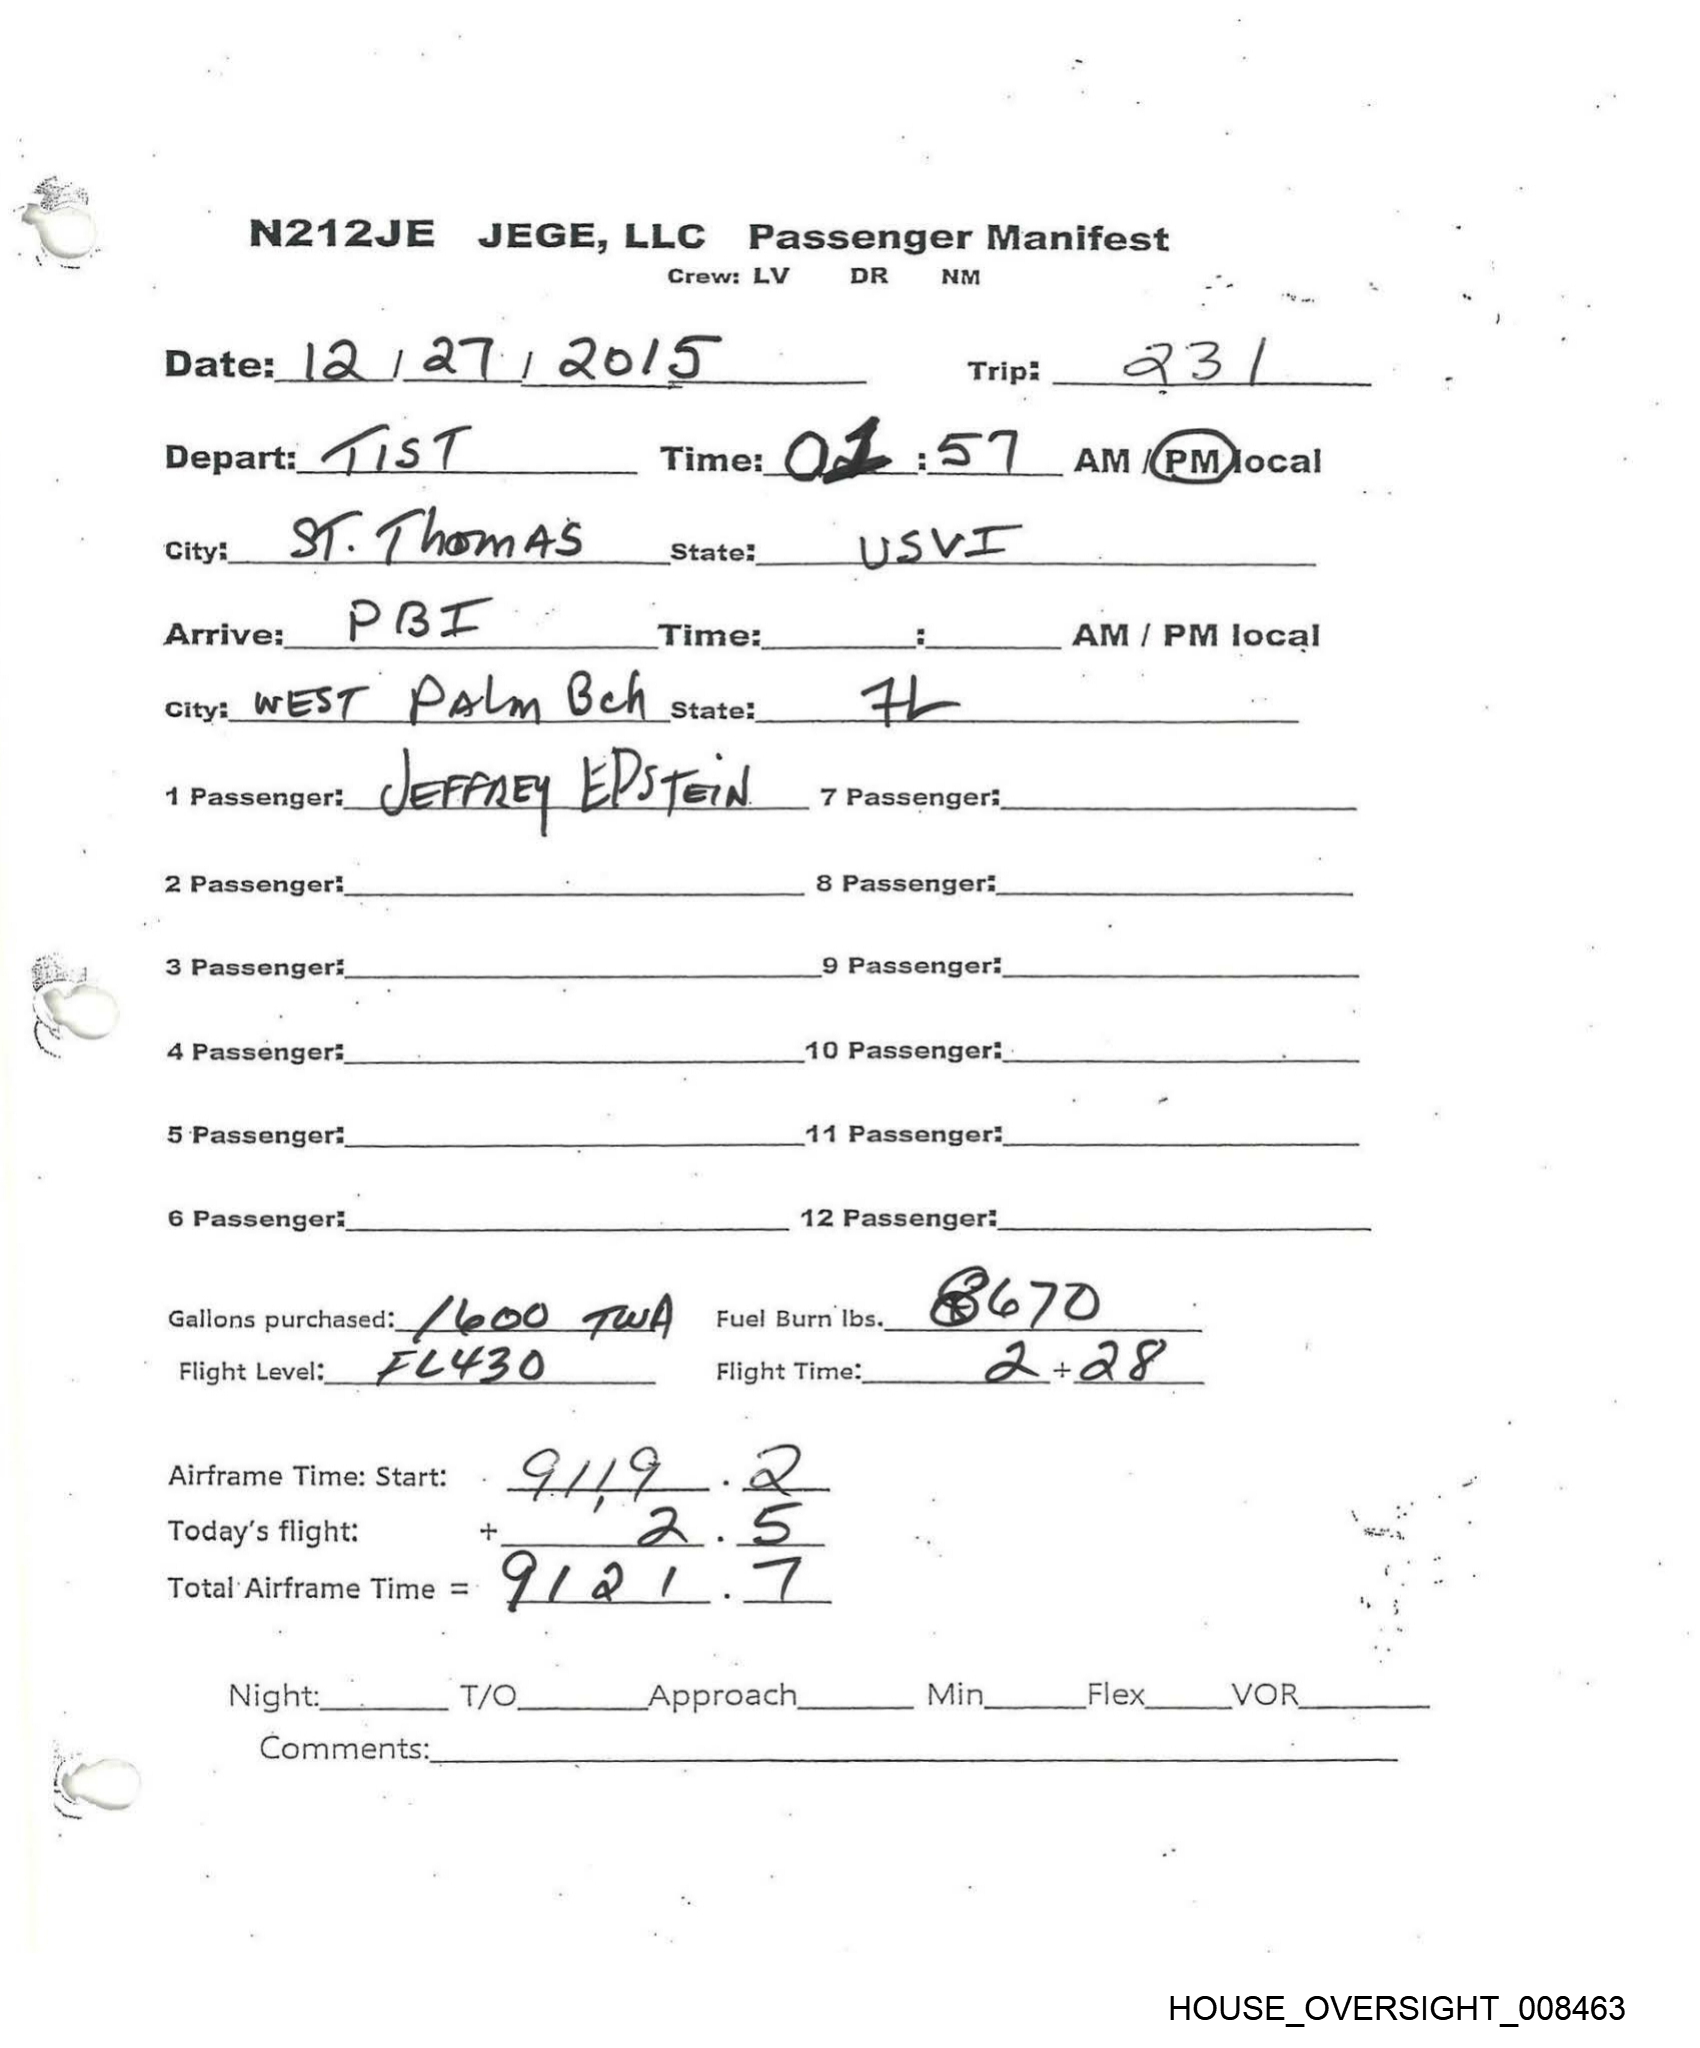 N212JE JEGE, LLC Passenger Manifest
Crew: LV DR NM
Date: 12 / 27 / 2015 Trip: 231
Depart: TIST Time: 01:57 AM / PM local
City: ST. Thomas State: USVI
Arrive: PBI Time: : AM / PM local
City: WEST PALm Bch State: FL
1 Passenger: JEFFREY EPSTEIN 7 Passenger:
2 Passenger: 8 Passenger:
3 Passenger: 9 Passenger:
4 Passenger: 10 Passenger:
5 Passenger: 11 Passenger:
6 Passenger: 12 Passenger:
Gallons purchased: 1600 TWA Fuel Burn lbs. 8670
Flight Level: FL430 Flight Time: 2 + 28
Airframe Time: Start: 9119 . 2
Today's flight: + 2 . 5
Total Airframe Time = 9121 . 7
Night: T/O Approach Min Flex VOR
Comments:
HOUSE_OVERSIGHT_008463